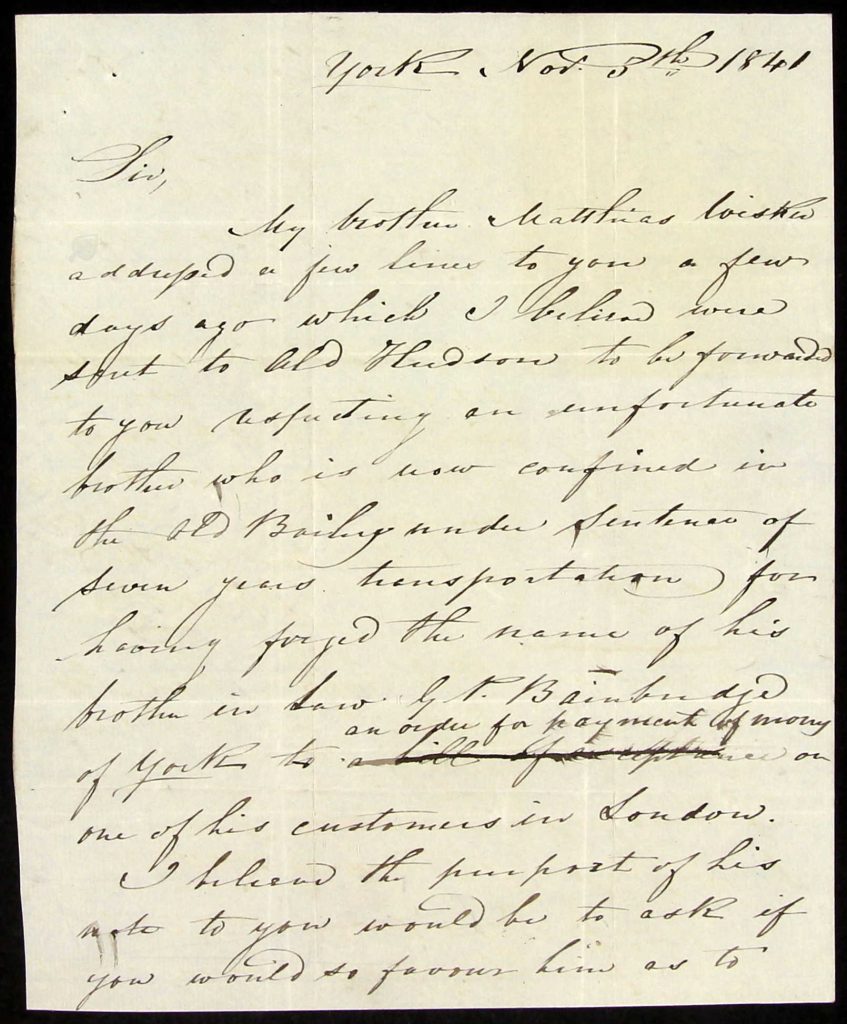 York Nov. 5th 1841
Sir,
My brother Matthias Wisker
addressed a few lines to you a few
days ago which I believe were
sent to Ald Hudson to be forwarded
to you respecting an unfortunate
brother who is now confined in
the Old Bailey under sentence of
seven years transportation for
having forged the name of his
brother in Law G T. Bainbridge
an order for payment of money
of York to a bill of acceptance on
one of his customers in London.
I believe the purport of his
note to you would be to ask if
you would so favour him as to